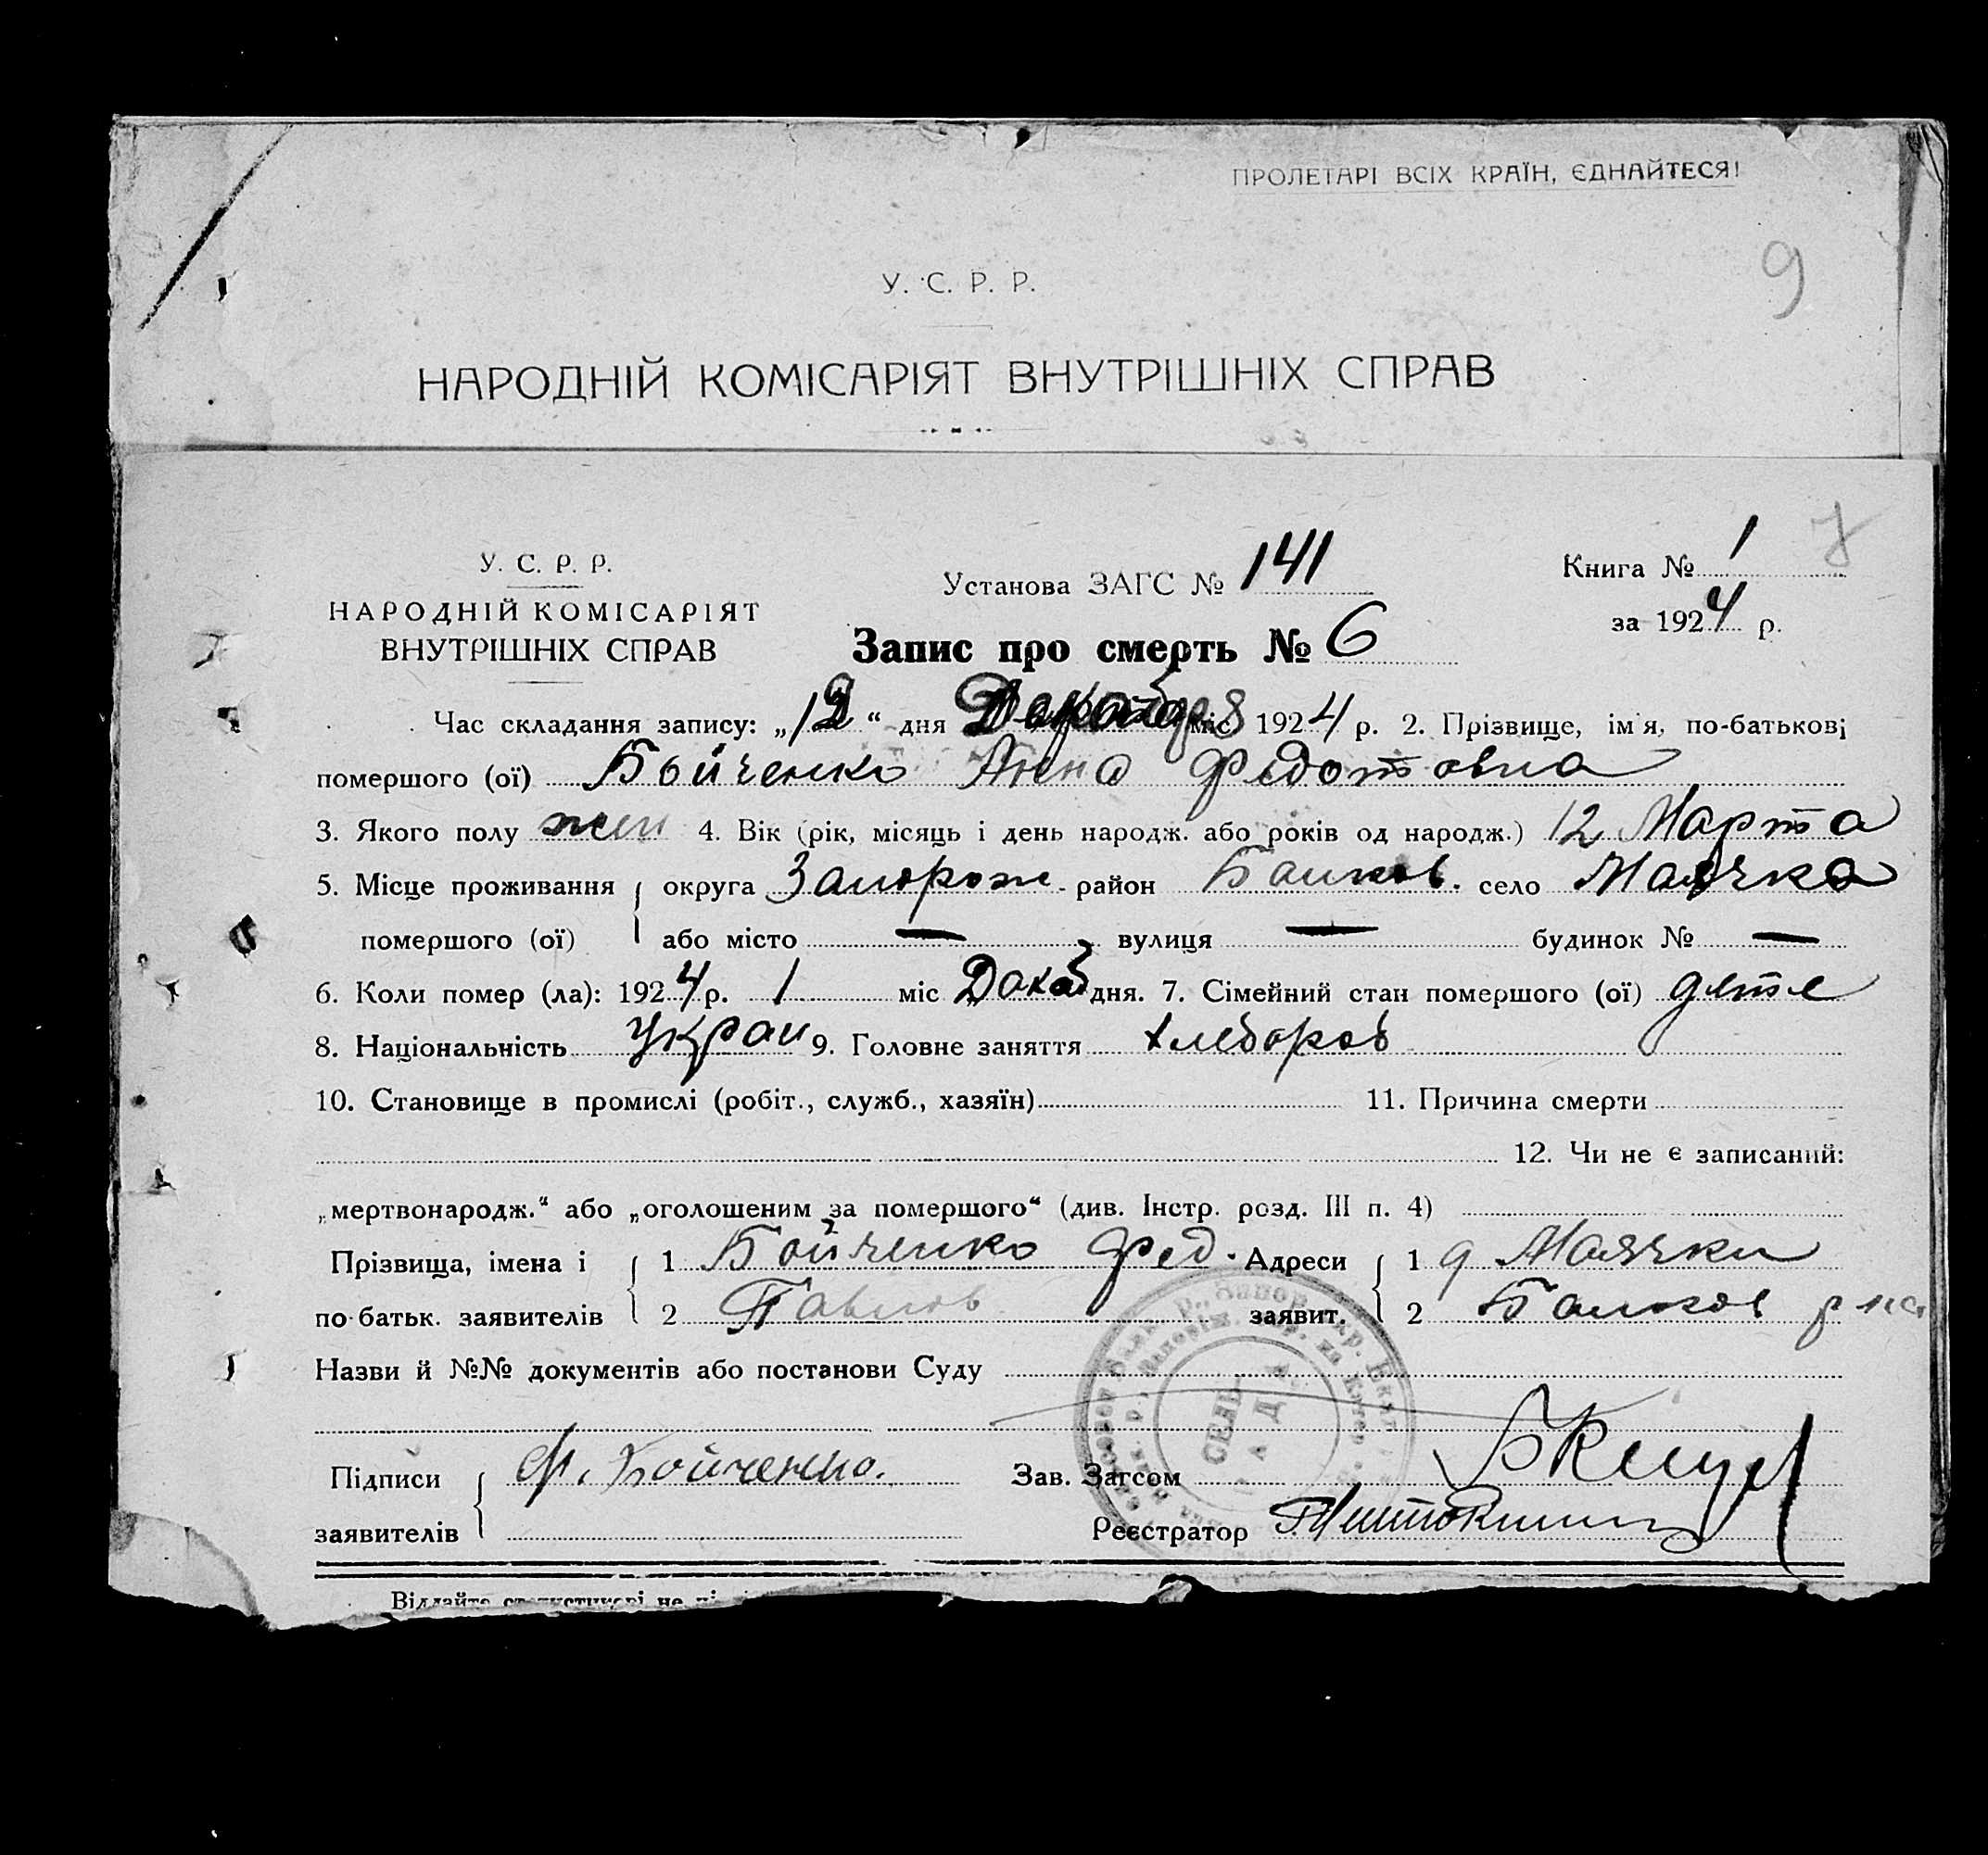 ПРОЛЕТАРІ ВСІХ КРАЇН, ЄДНАЙТЕСЯ!
9
У. С. Р. Р.
НАРОДНІЙ КОМІСАРІЯТ ВНУТРІШНІХ СПРАВ
У. С. Р. Р.
НАРОДНІЙ КОМІСАРІЯТ
ВНУТРІШНІХ СПРАВ
Установа ЗАГС № 141
Книга № 1
за 1924 р.
Запис про смерть № 6
Час складання запису: „12“ дня Декабря міс 1924 р. 2. Прізвище, ім'я, по-батькові
помершого (ої) Бойченко Анна Федотовна
3. Якого полу жен 4. Вік (рік, місяць і день народж. або років од народж.) 12 Марта
5. Місце проживання округа Запорож. район Балков. село Маячка
помершого (ої) або місто — вулиця — будинок № —
6. Коли помер (ла): 1924 р. 1 міс Докаб дня. 7. Сімейний стан помершого (ої) дете
8. Національність Украи 9. Головне заняття хлебороб
10. Становище в промислі (робіт., служб., хазяїн) 11. Причина смерти
12. Чи не є записаний:
„мертвонародж.“ або „оголошеним за помершого“ (див. Інстр. розд. III п. 4)
Прізвища, імена і 1 Бойченко Фед. Адреси 1 д Маячки
по-батьк. заявителів 2 Павлов заявит. 2 Балков
Назви й №№ документів або постанови Суду
СЕЛЬ
РАДА
Підписи Ф. Бойченко. Зав. Загсом
заявителів Реєстратор